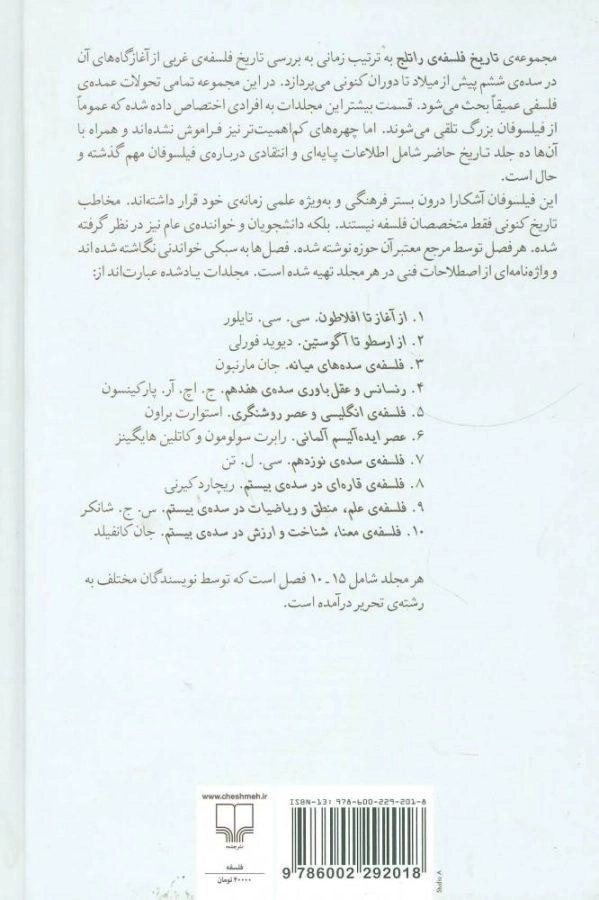 مجموعه‌ی تاریخ فلسفه‌ی راتلج به ترتیب زمانی به بررسی تاریخ فلسفه‌ی غربی از آغازگاه‌های آن
در سده‌ی ششم پیش از میلاد تا دوران کنونی می‌پردازد. در این مجموعه تمامی تحولات عمده‌ی
فلسفی عمیقاً بحث می‌شود. قسمت بیشتر این مجلدات به افرادی اختصاص داده شده که عموماً
از فیلسوفان بزرگ تلقی می‌شوند. اما چهره‌های کم‌اهمیت‌تر نیز فراموش نشده‌اند و همراه با
آن‌ها ده جلد تاریخ حاضر شامل اطلاعات پایه‌ای و انتقادی درباره‌ی فیلسوفان مهم گذشته و
حال است.
این فیلسوفان آشکارا درون بستر فرهنگی و به‌ویژه علمی زمانه‌ی خود قرار داشته‌اند. مخاطب
تاریخ کنونی فقط متخصصان فلسفه نیستند. بلکه دانشجویان و خواننده‌ی عام نیز در نظر گرفته
شده. هر فصل توسط مرجع معتبر آن حوزه نوشته شده. فصل‌ها به سبکی خواندنی نگاشته شده اند
و واژه‌نامه‌ای از اصطلاحات فنی در هر مجلد تهیه شده است. مجلدات یادشده عبارت‌اند از:
۱. از آغاز تا افلاطون. سی. سی. تایلور
۲. از ارسطو تا آگوستین. دیوید فورلی
۳. فلسفه‌ی سده‌های میانه. جان مارنبون
۴. رنسانس و عقل‌باوری سده‌ی هفدهم. ج. اچ. آر. پارکینسون
۵. فلسفه‌ی انگلیسی و عصر روشنگری. استوارت براون
۶. عصر ایده‌آلیسم آلمانی. رابرت سولومون و کاتلین هایگینز
۷. فلسفه‌ی سده‌ی نوزدهم. سی. ل. تن
۸. فلسفه‌ی قاره‌ای در سده‌ی بیستم. ریچارد کیرنی
۹. فلسفه‌ی علم، منطق و ریاضیات در سده‌ی بیستم. س. ج. شانکر
۱۰. فلسفه‌ی معنا، شناخت و ارزش در سده‌ی بیستم. جان کانفیلد
هر مجلد شامل ۱۵ ـ ۱۰ فصل است که توسط نویسندگان مختلف به
رشته‌ی تحریر درآمده است.
www.cheshmeh.ir
نشرچشمه
فلسفه
۴۰۰۰۰ تومان
ISBN-13: 978-600-229-201-8
9 786002 292018
Studio A